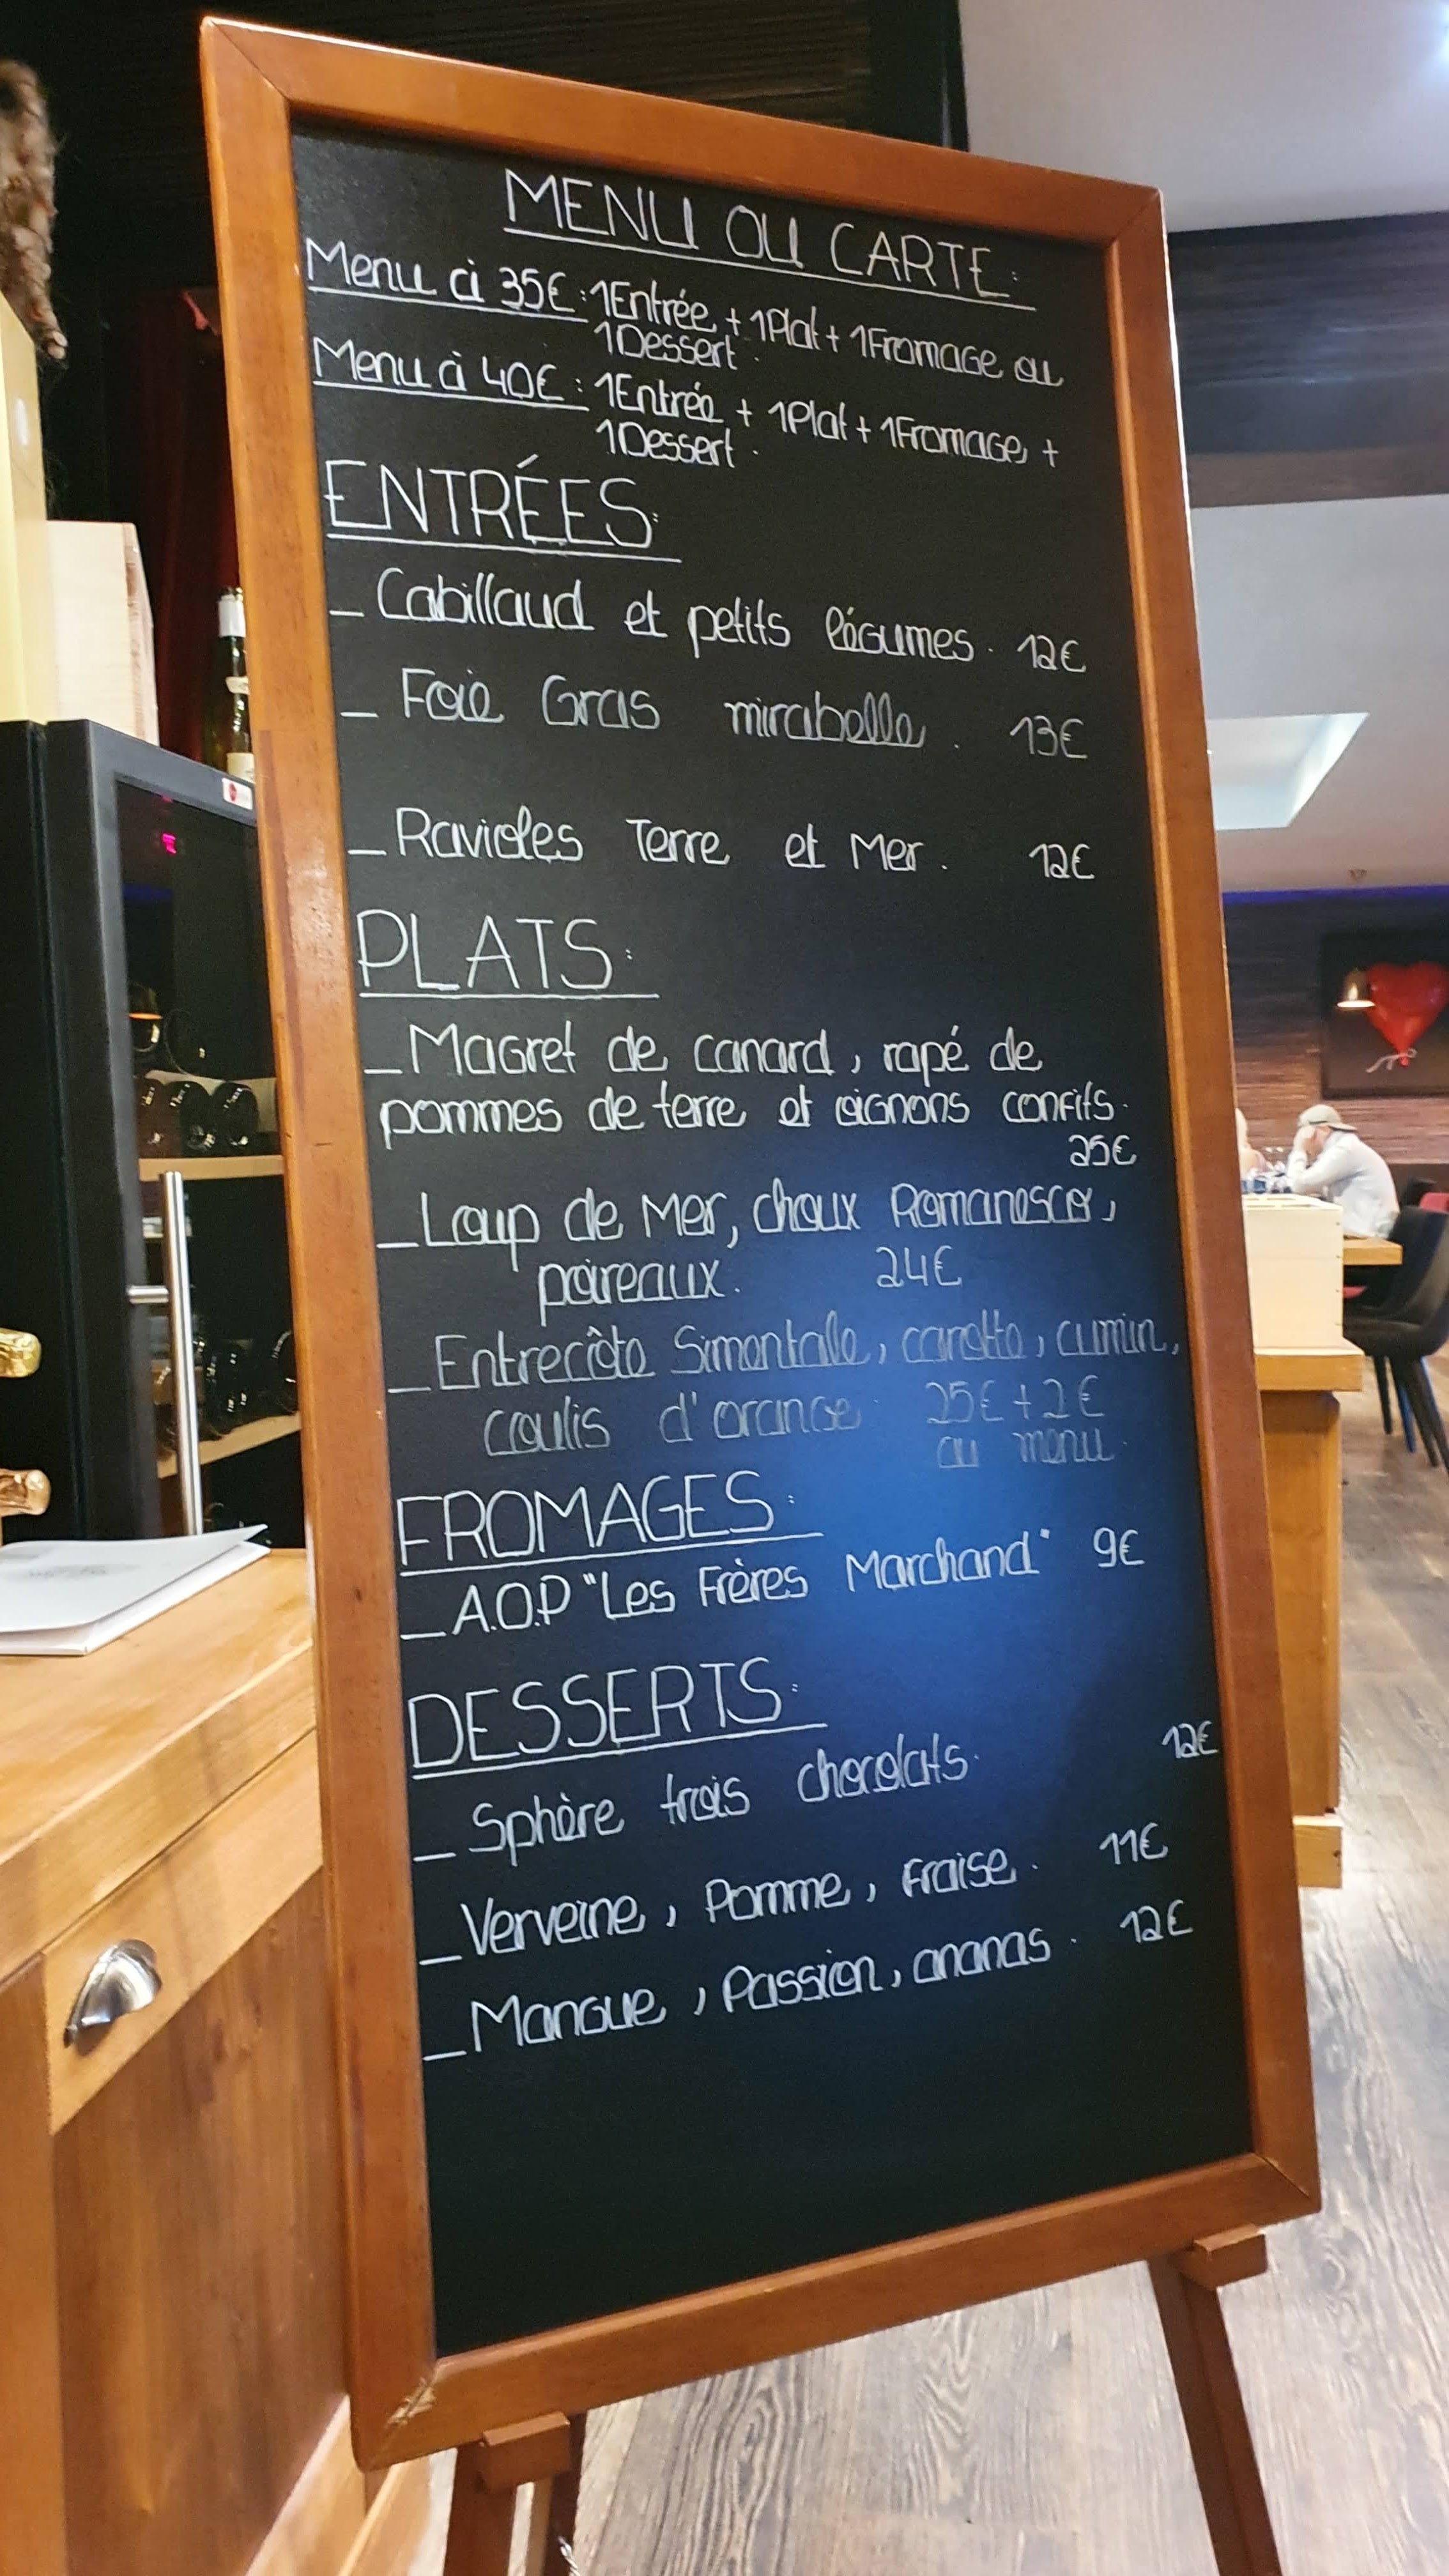 MENU OU CARTE:
Menu à 35€ : 1 Entrée + 1 Plat + 1 Fromage ou
1 Dessert.
Menu à 40€ : 1 Entrée + 1 Plat + 1 Fromage +
1 Dessert.
ENTRÉES:
_ Cabillaud et petits légumes. 12€
_ Foie Gras mirabelle. 13€
_ Ravioles Terre et Mer. 12€
PLATS:
_ Magret de canard, rapé de
pommes de terre et oignons confits.
25€
_ Loup de Mer, choux Romanesco,
poireaux. 24€
_ Entrecôte Simentale, carotte, cumin,
coulis d'orange. 25€ + 2€
au menu.
FROMAGES:
_ A.O.P "Les Frères Marchand" 9€
DESSERTS:
_ Sphère trois chocolats. 12€
_ Verveine, Pomme, fraise. 11€
_ Mangue, Passion, ananas. 12€